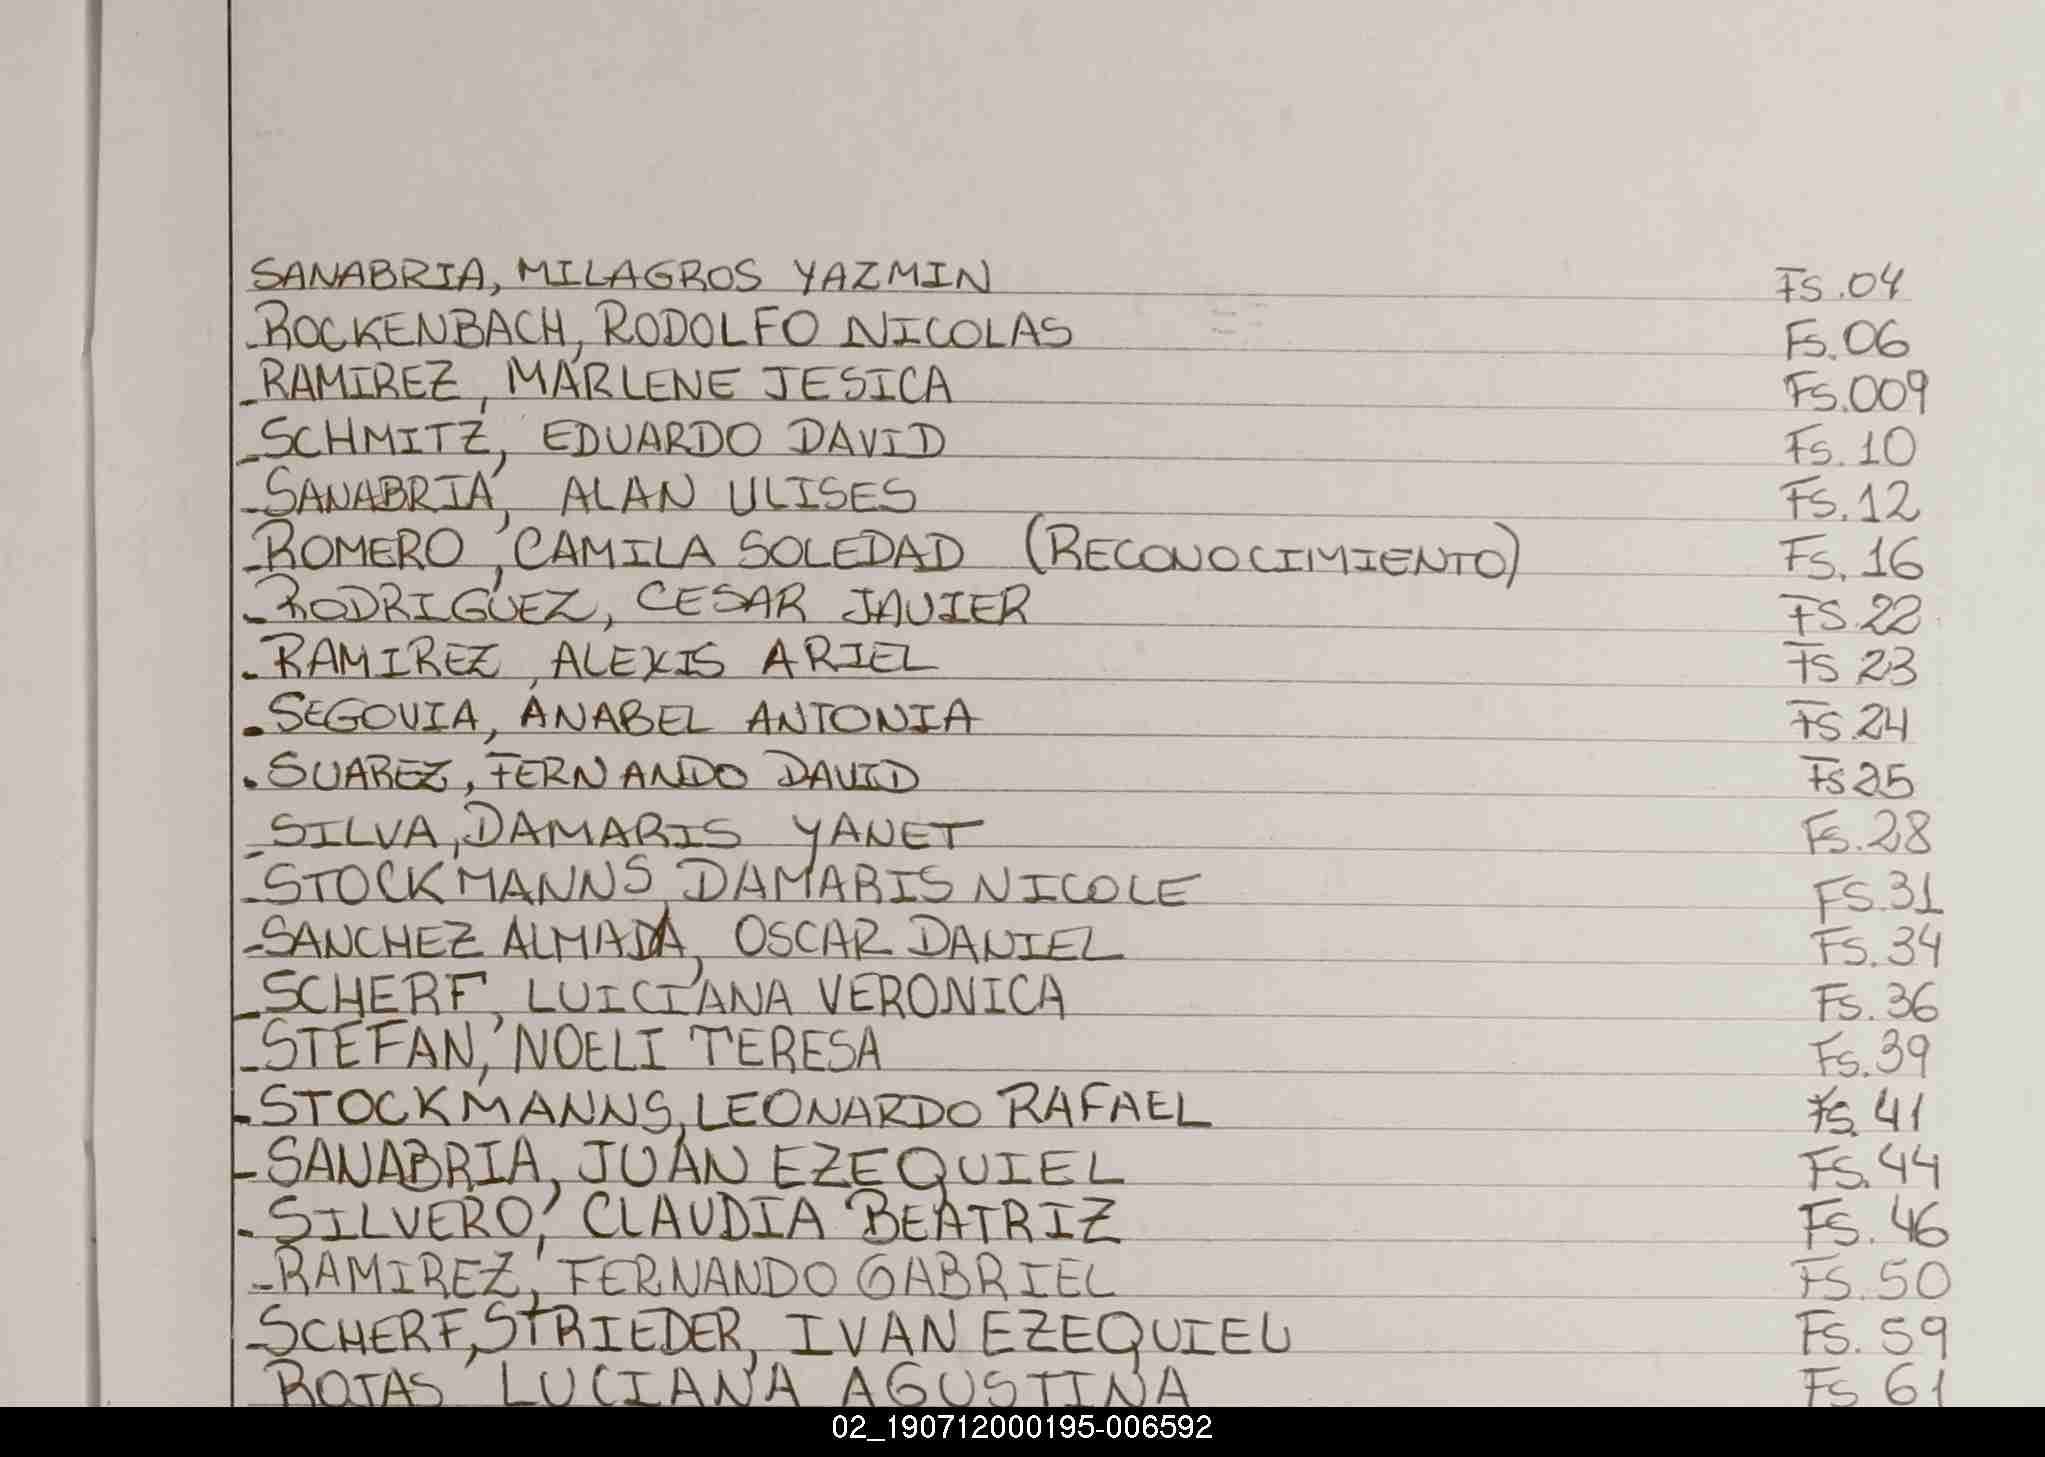 SANABRIA, MILAGROS YAZMIN Fs.04
-ROCKENBACH, RODOLFO NICOLAS Fs.06
-RAMIREZ, MARLENE JESICA Fs.009
-SCHMITZ, EDUARDO DAVID Fs.10
-SANABRIA, ALAN ULISES FS.12
-ROMERO, CAMILA SOLEDAD (RECONOCIMIENTO) Fs.16
-RODRIGUEZ, CESAR JAVIER FS.22
-RAMIREZ, ALEXIS ARIEL FS 23
.SEGOVIA, ANABEL ANTONIA FS.24
.SUAREZ, FERNANDO DAVID Fs 25
-SILVA, DAMARIS YANET Fs.28
-STOCKMANNS, DAMARIS NICOLE FS.31
-SANCHEZ ALMADA, OSCAR DANIEL FS.34
-SCHERF, LUICIANA VERONICA Fs.36
-STEFAN, NOELI TERESA Fs.39
-STOCKMANNS, LEONARDO RAFAEL Fs.41
-SANABRIA, JUAN EZEQUIEL FS.44
-SILVERO, CLAUDIA BEATRIZ FS.46
-RAMIREZ, FERNANDO GABRIEL FS.50
-SCHERF, STRIEDER, IVAN EZEQUIEL FS.59
ROJAS LUCIANA AGUSTINA FS 61
02_190712000195-006592